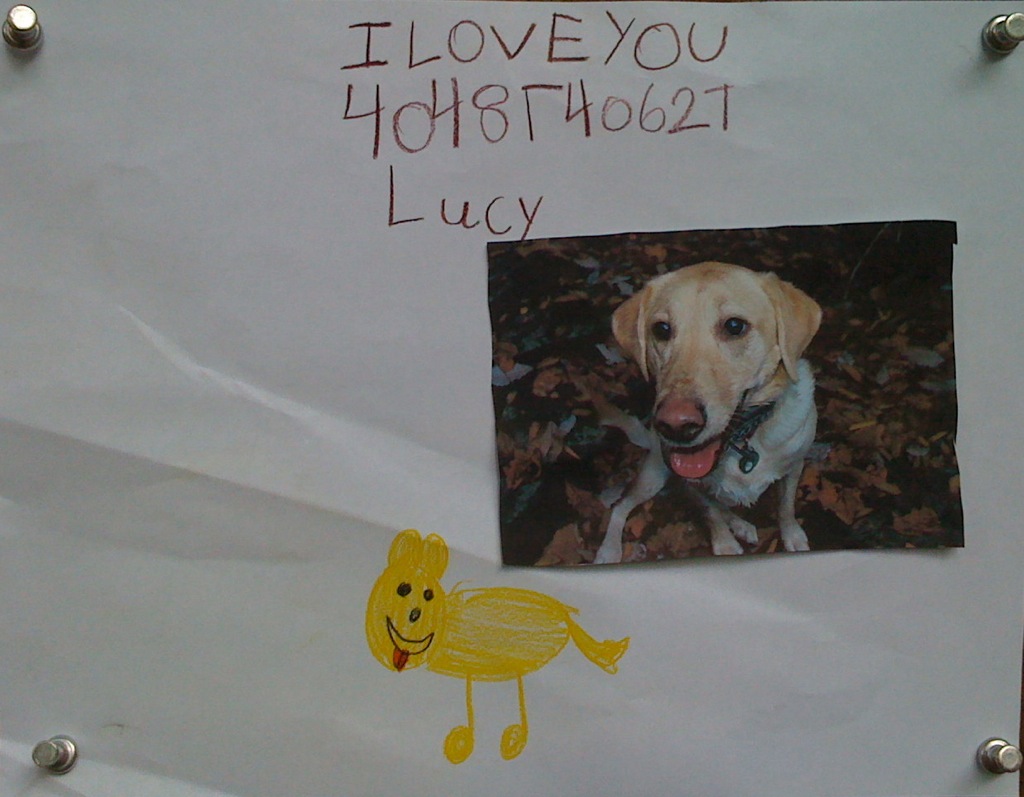 I LOVE YOU
4048740627
Lucy